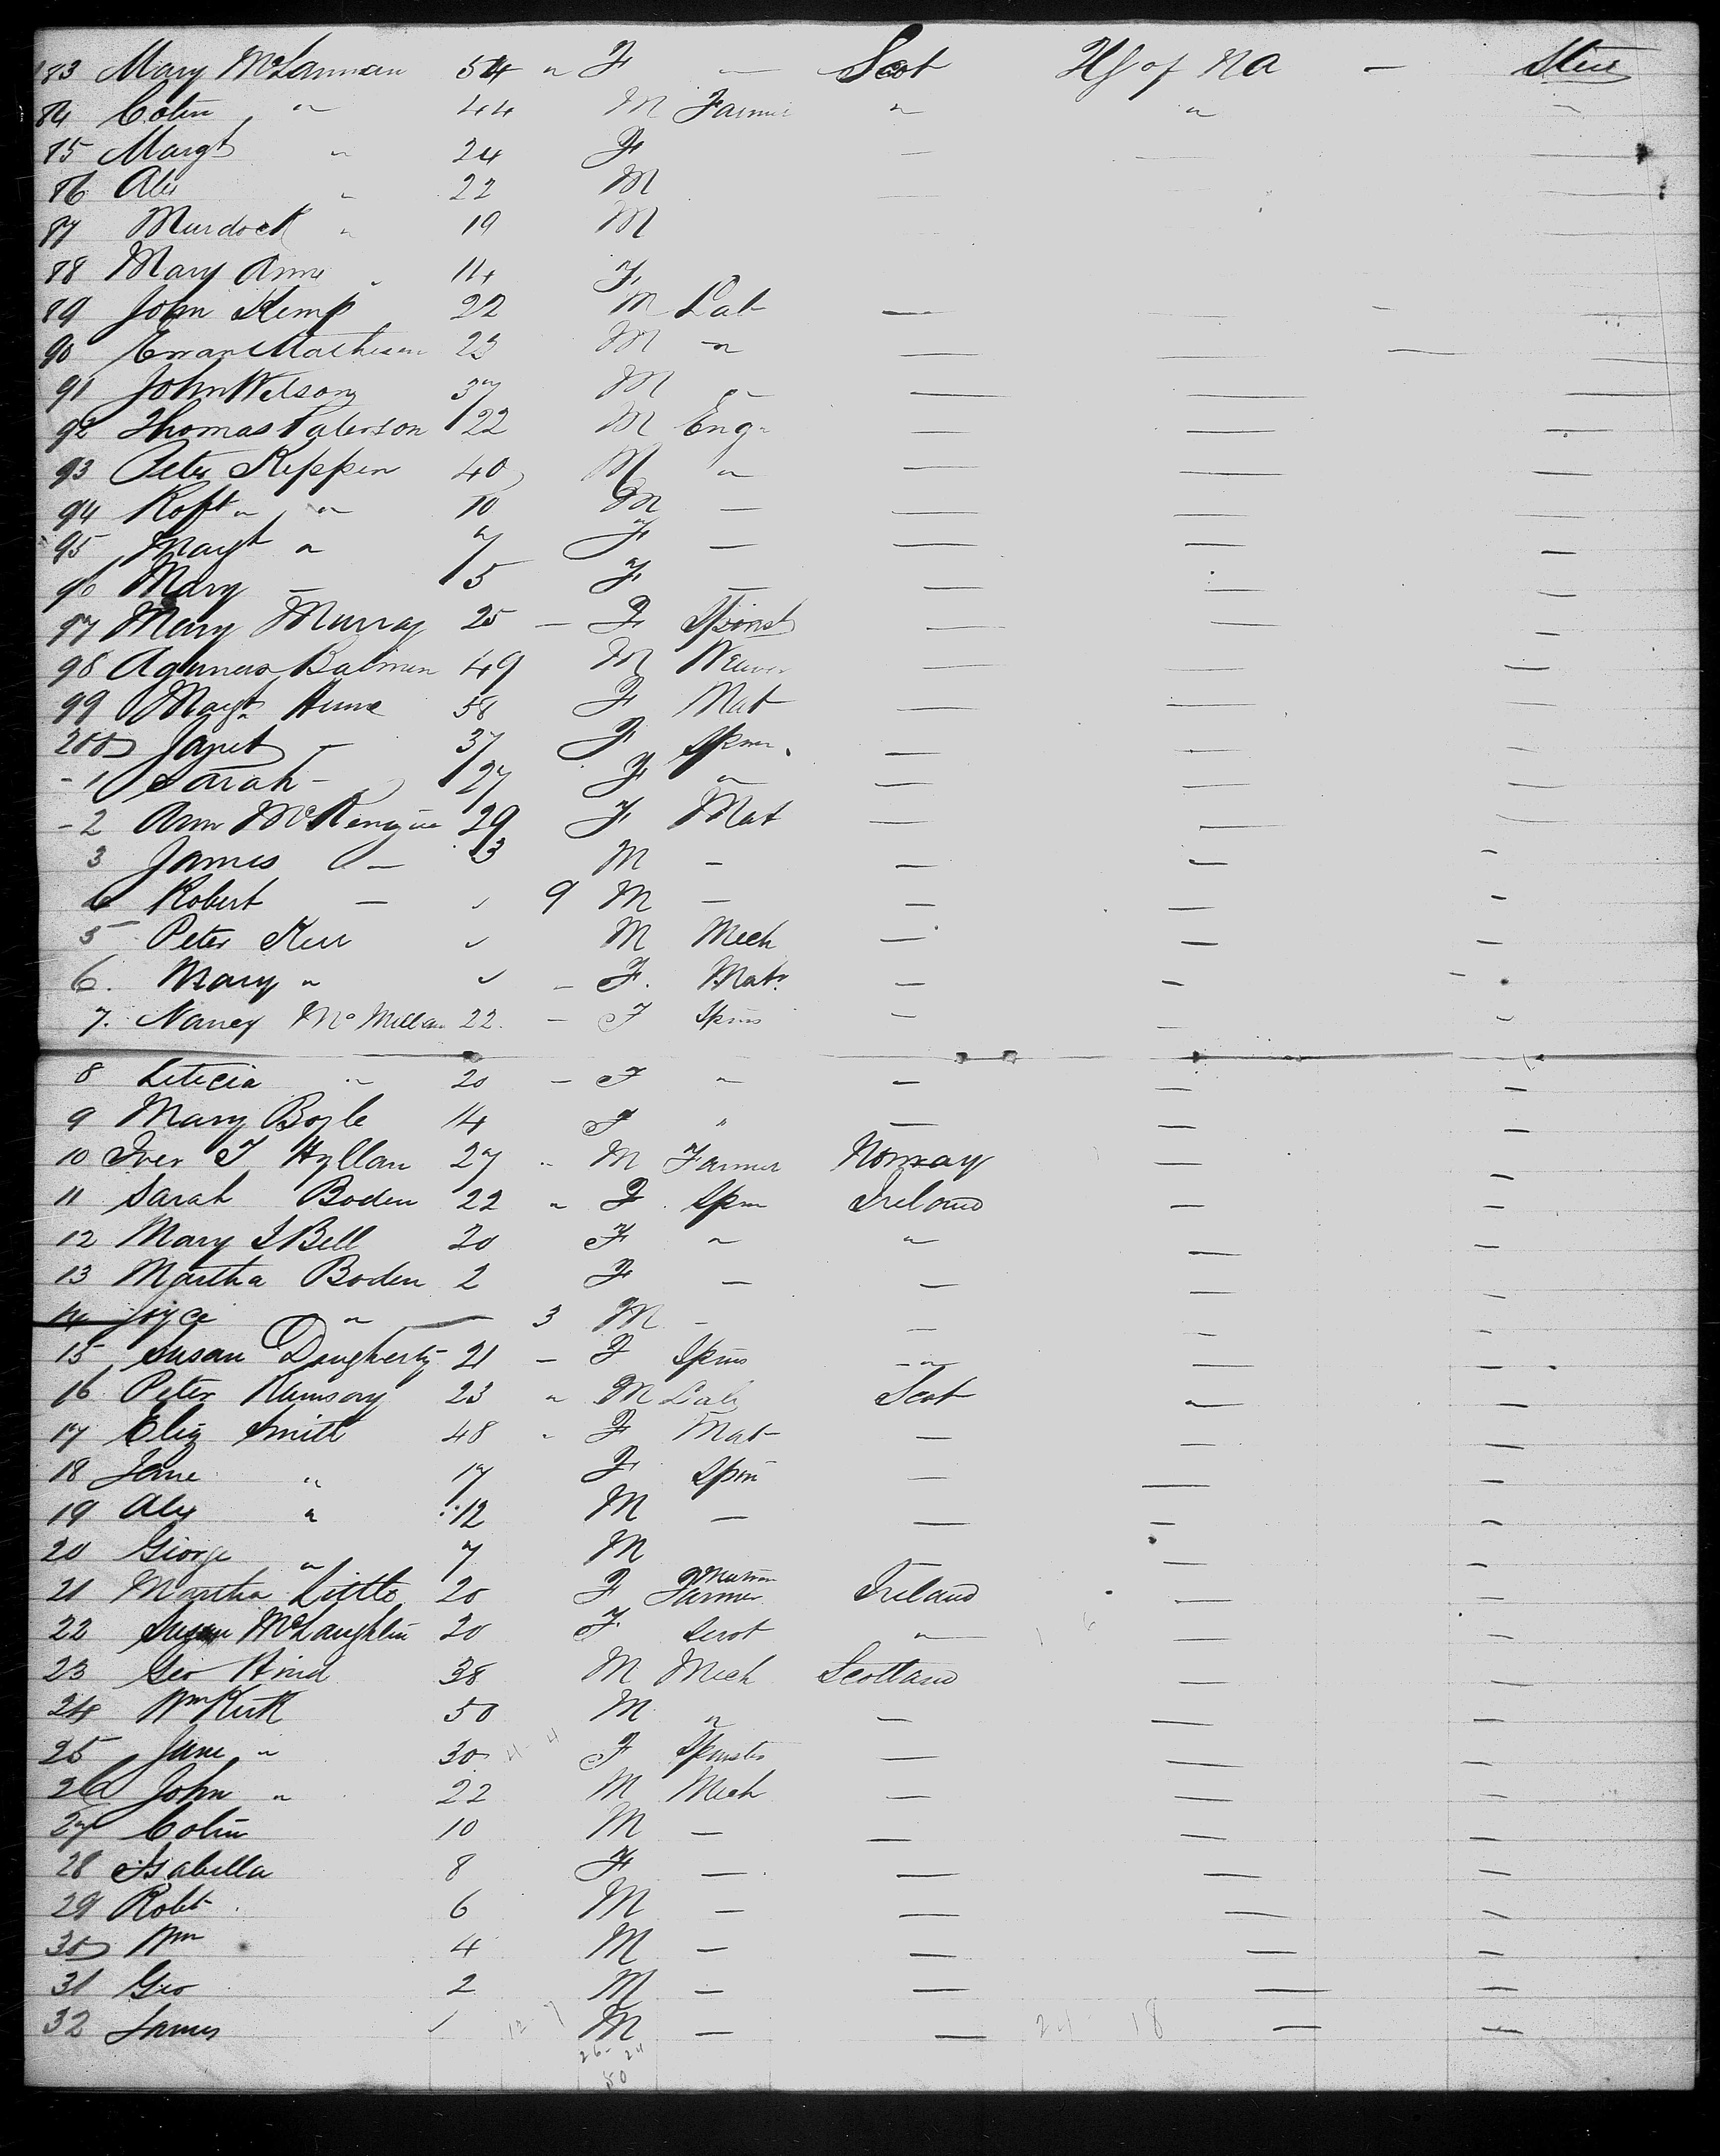 183 Mary McLannan 54 " F — Scot US of NA — Stee
84 Colin " 44 M Farmer " " "
85 Margt " 24 F — —
86 Alex " 22 M
87 Murdock " 19 M
88 Mary Ann " 14 F
89 John Kemp 22 M Lab — — —
90 Ewan Matheson 23 M " — — —
91 John Wilson 37 M " — — —
92 Thomas Paterson 22 M Eng — — —
93 Peter Kippen 40 M " — — —
94 Robt " " 10 M — — — —
95 Margt " 7 F — — — —
96 Mary — 5 F — — — —
97 Mary Murray 25 — F Spinst — — —
98 Balmer 49 M Weaver — — —
99 Margt Hume 58 F Mat — — —
200 Janet — 37 F Spin — — —
- 1 Sarah - 27 F " — — —
- 2 Ann McKenzie 29 F Mat — — —
3 James — 3 M - — — -
4 Robert — ✓ 9 M — — — -
5 Peter Kerr ✓ M Mech — — -
6. Mary " ✓ - F. Matr. — - -
7. Nancy McMillan 22. — F Spins — - -
8 Leticia " 20 — F " — — -
9 Mary Boyle 14 F " — — —
10 Iver T Hyllan 27 " M Farmer Norway — -
11 Sarah Boden 22 " F Spin Ireland — -
12 Mary J Bell 20 F " " — -
13 Martha Boden 2 F — — — -
14 Joyce " — 3 M - — — -
15 Susan Dougherty 21 — F Spins - " — -
16 Peter Ramsay 23 " M Lab Scot " -
17 Eliz Smith 48 " F Mat — — -
18 Jane " 17 F Spin — — -
19 Alex " 12 M — — — -
20 George " 7 M — — -
21 Martha Little 20 F Matron Farmer Ireland — -
22 Susan McLaughlin 20 F. Servt " — -
23 Geo Hind 38 M Mech Scotland — -
24 Wm Kirk 50 M " — — -
25 Jane " 30 F Spinster — — -
26 John " 22 M Mech — — -
27 Colin 10 M — — — -
28 Isabella 8 F — — — -
29 Robt 6 M — — — -
30 Wm 4 M — — — -
31 Geo 2 M — — — -
32 James ✓ 12 7 M — — 24 18 — —
26 - 24
50